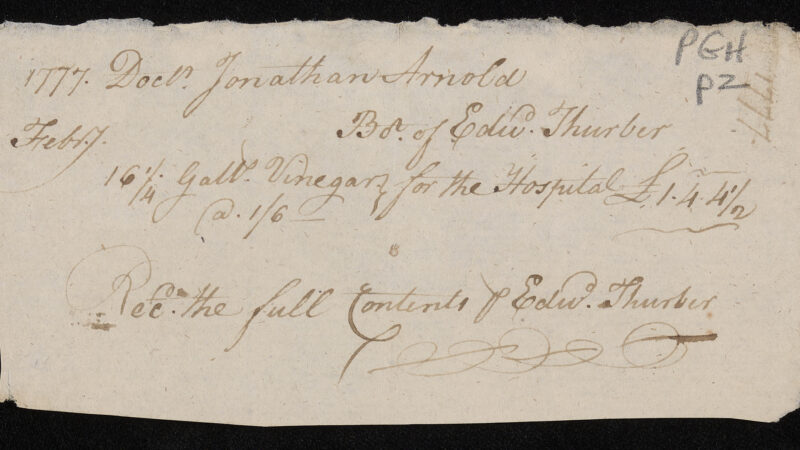 PGH
P2
1777
1777. Doctr. Jonathan Arnold
Febry. Bt. of Edwd. Thurber
16 1/4 Galls. Vinegar for the Hospital £1.4.4 1/2
@. 1/6
Recd. the full Contents ⅌ Edwd. Thurber